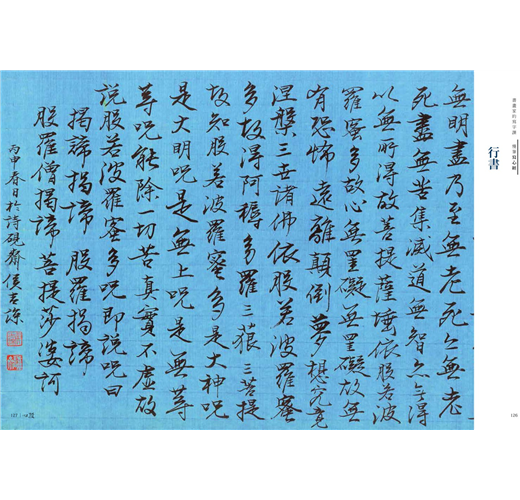 行書
無明盡乃至無老死亦無老
死盡無苦集滅道無智亦無得
以無所得故菩提薩埵依般若波
羅蜜多故心無罣礙無罣礙故無
有恐怖遠離顛倒夢想究竟
涅槃三世諸佛依般若波羅蜜
多故得阿耨多羅三藐三菩提
故知般若波羅蜜多是大神咒
是大明咒是無上咒是無等
等咒能除一切苦真實不虛故
說般若波羅蜜多咒即說咒曰
揭諦揭諦 般羅揭諦
般羅僧揭諦菩提莎婆訶
丙申春日於詩硯齋侯吉諒
126
127